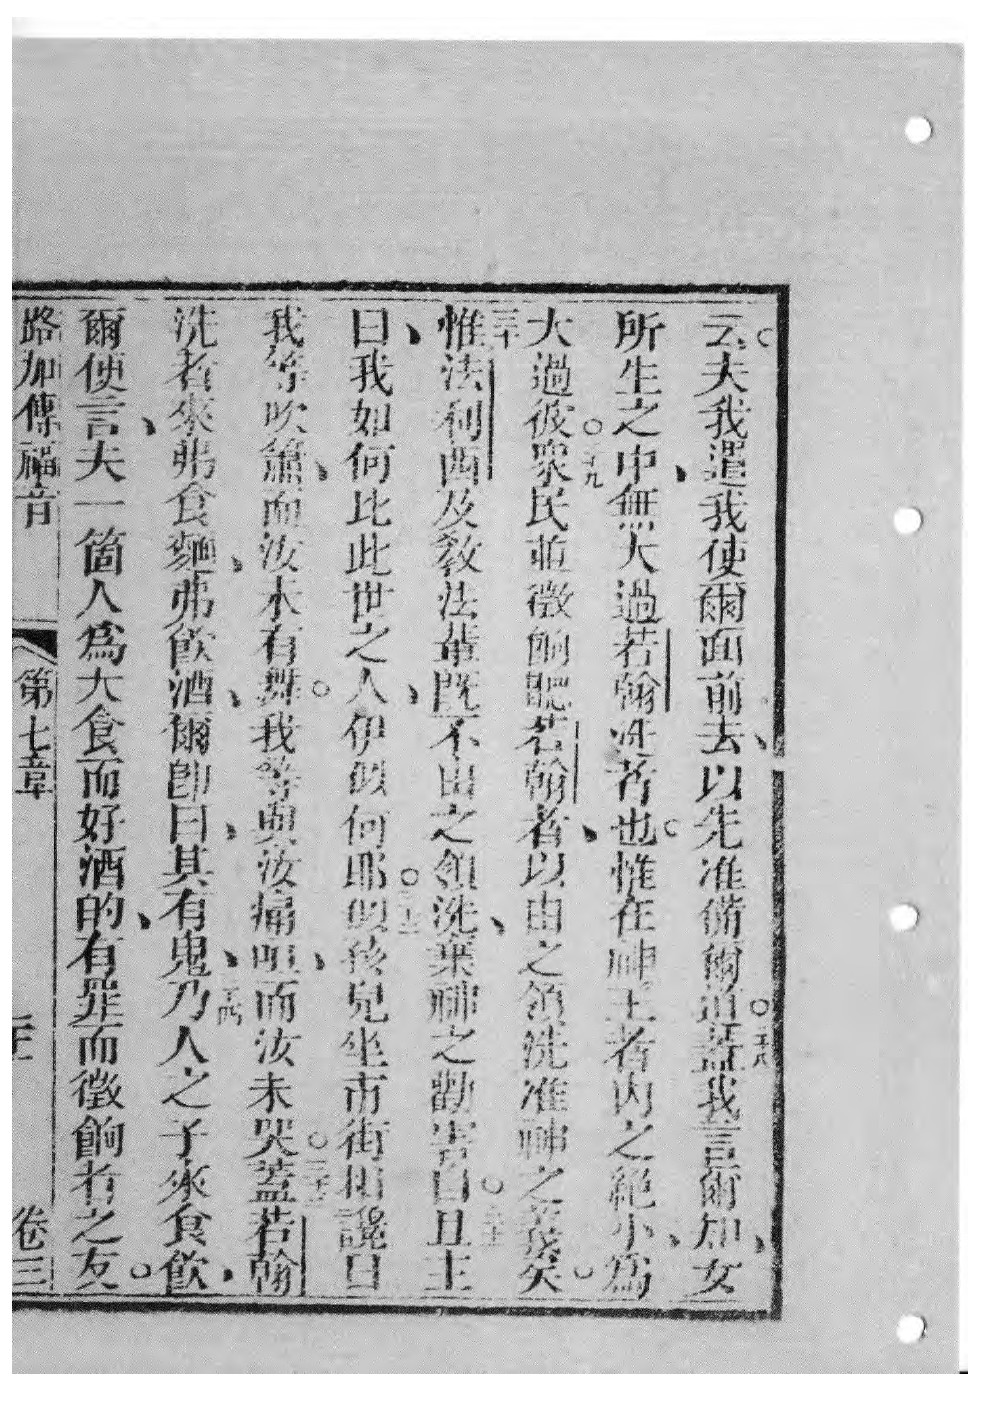 云夫我遣我使爾面前去、以先准備爾道。二十八蓋我言爾知、女
所生之中、無大過若翰洗者也。惟在神王者內之絕小、為
大過彼。二十九眾民並徵餉聽若翰者、以由之領洗准神之義矣。
三十惟法利西及教法輩既不由之領洗、棄神之勸害自。三十一且主
曰、我如何比此世之人、伊似何耶。三十二似孩兒坐市街相讒曰
我等吹簫、而汝未有舞。我等與汝痛呾、而汝未哭。三十三蓋若翰
洗者來弗食麵、弗飲酒、爾即曰、其有鬼、三十四乃人之子來食飲、
爾使言、夫一箇人為大食而好酒的、有罪而徵餉者之友。
路加傳福音 第七章 卷三